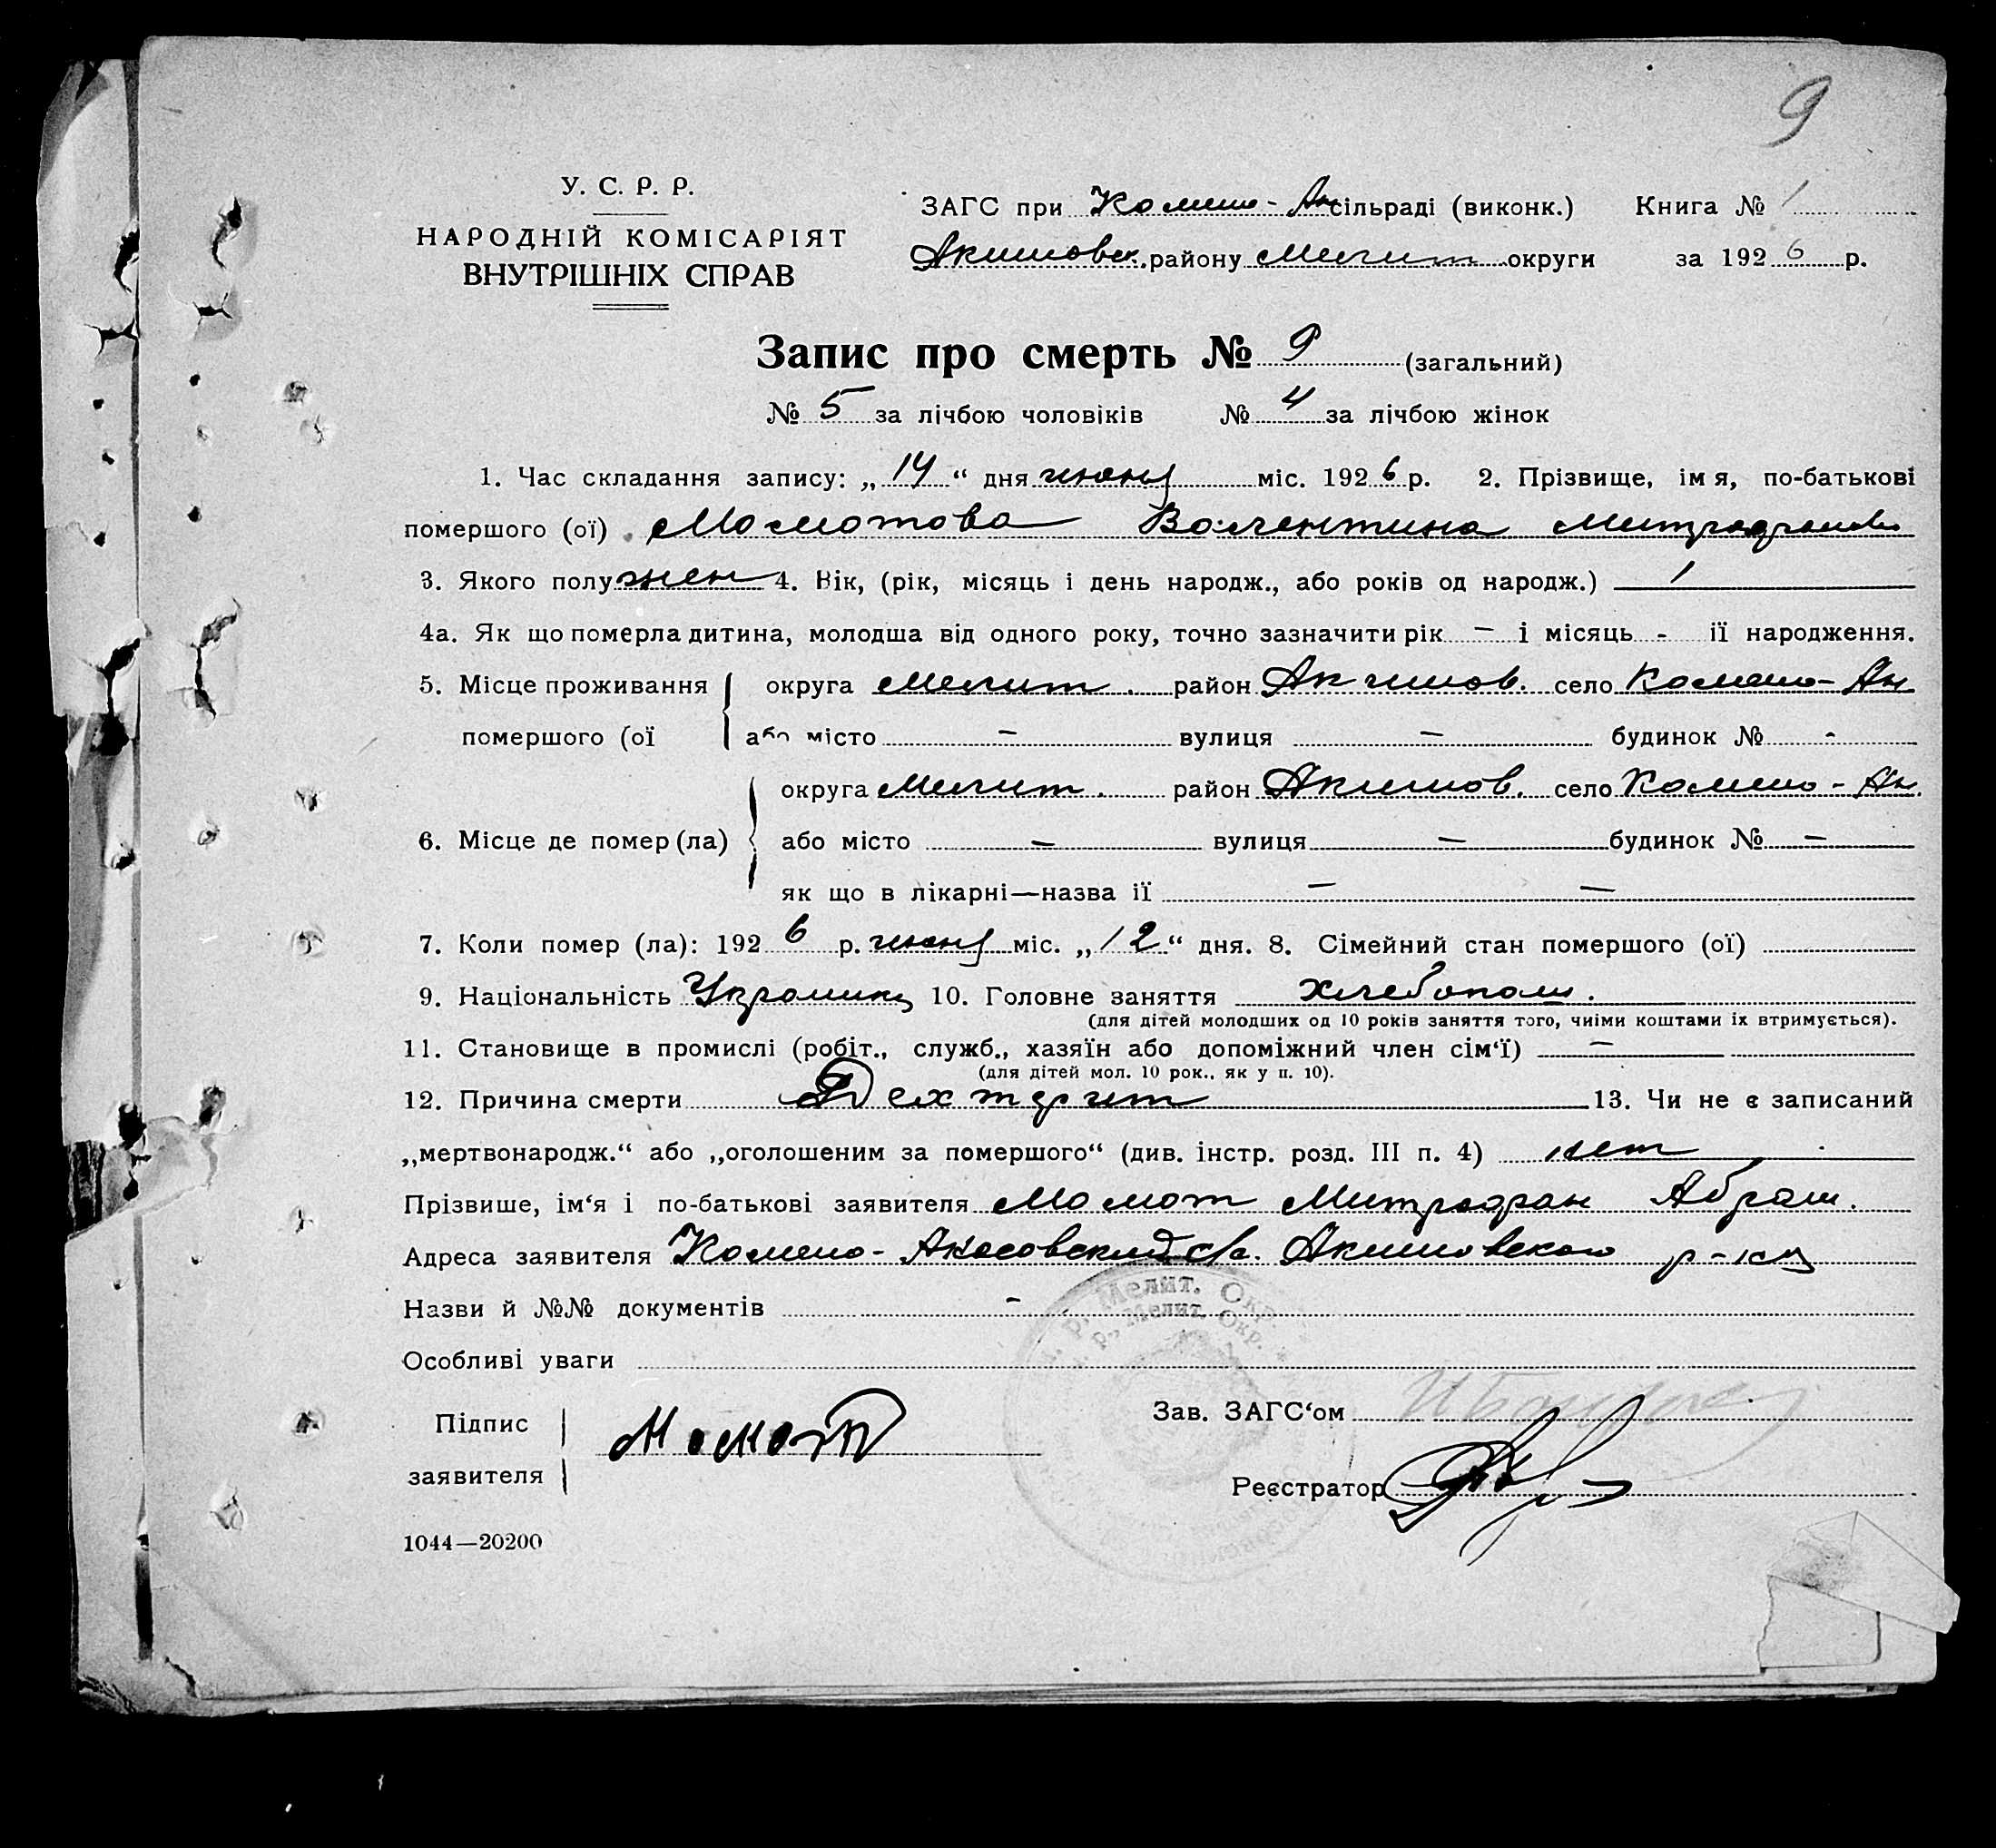 9
У. С. Р. Р.
НАРОДНІЙ КОМІСАРІЯТ
ВНУТРІШНІХ СПРАВ
ЗАГС при Комиш- Ан сільраді (виконк.) Книга № 1
Акимовск. району Мелит округи за 1926 р.
Запис про смерть № 9 (загальний)
№ 5 за лічбою чоловіків № 4 за лічбою жінок
1. Час складання запису: „14“ дня июня міс. 1926 р. 2. Прізвище, імя, по-батькові
помершого (ої) Момотова Валентина Митрофанов
3. Якого полу жен 4. Вік, (рік, місяць і день народж., або років од народж.) 1
4а. Як що померла дитина, молодша від одного року, точно зазначити рік — і місяць - її народження.
5. Місце проживання округа Мелит. район Акимов. село Комыш- Ан.
помершого (ої або місто — вулиця — будинок № -
округа Мелит. район Акимов. село Комыш - Ан.
6. Місце де помер (ла) або місто — вулиця — будинок № —
як що в лікарні—назва її — —
7. Коли помер (ла): 1926 р. июня міс. „12“ дня. 8. Сімейний стан помершого (ої)
9. Національність Украинка 10. Головне заняття Хлебопаш.
(для дітей молодших од 10 років заняття того, чиїми коштами їх втримується).
11. Становище в промислі (робіт., служб., хазяїн або допоміжний член сім‘ї) —
(для дітей мол. 10 рок., як у п. 10).
12. Причина смерти Дехтерит 13. Чи не є записаний
„мертвонародж.“ або „оголошеним за помершого“ (див. інстр. розд. III п. 4) нет
Прізвише, ім‘я і по-батькові заявителя Момот Митрофан Абрам.
Адреса заявителя с/с. Акимовского р-на
Назви й №№ документів -
Особливі уваги
Підпис
заявителя Момот
Зав. ЗАГС‘ом
Реєстратор
р., Мелит. Окр.
1044—20200